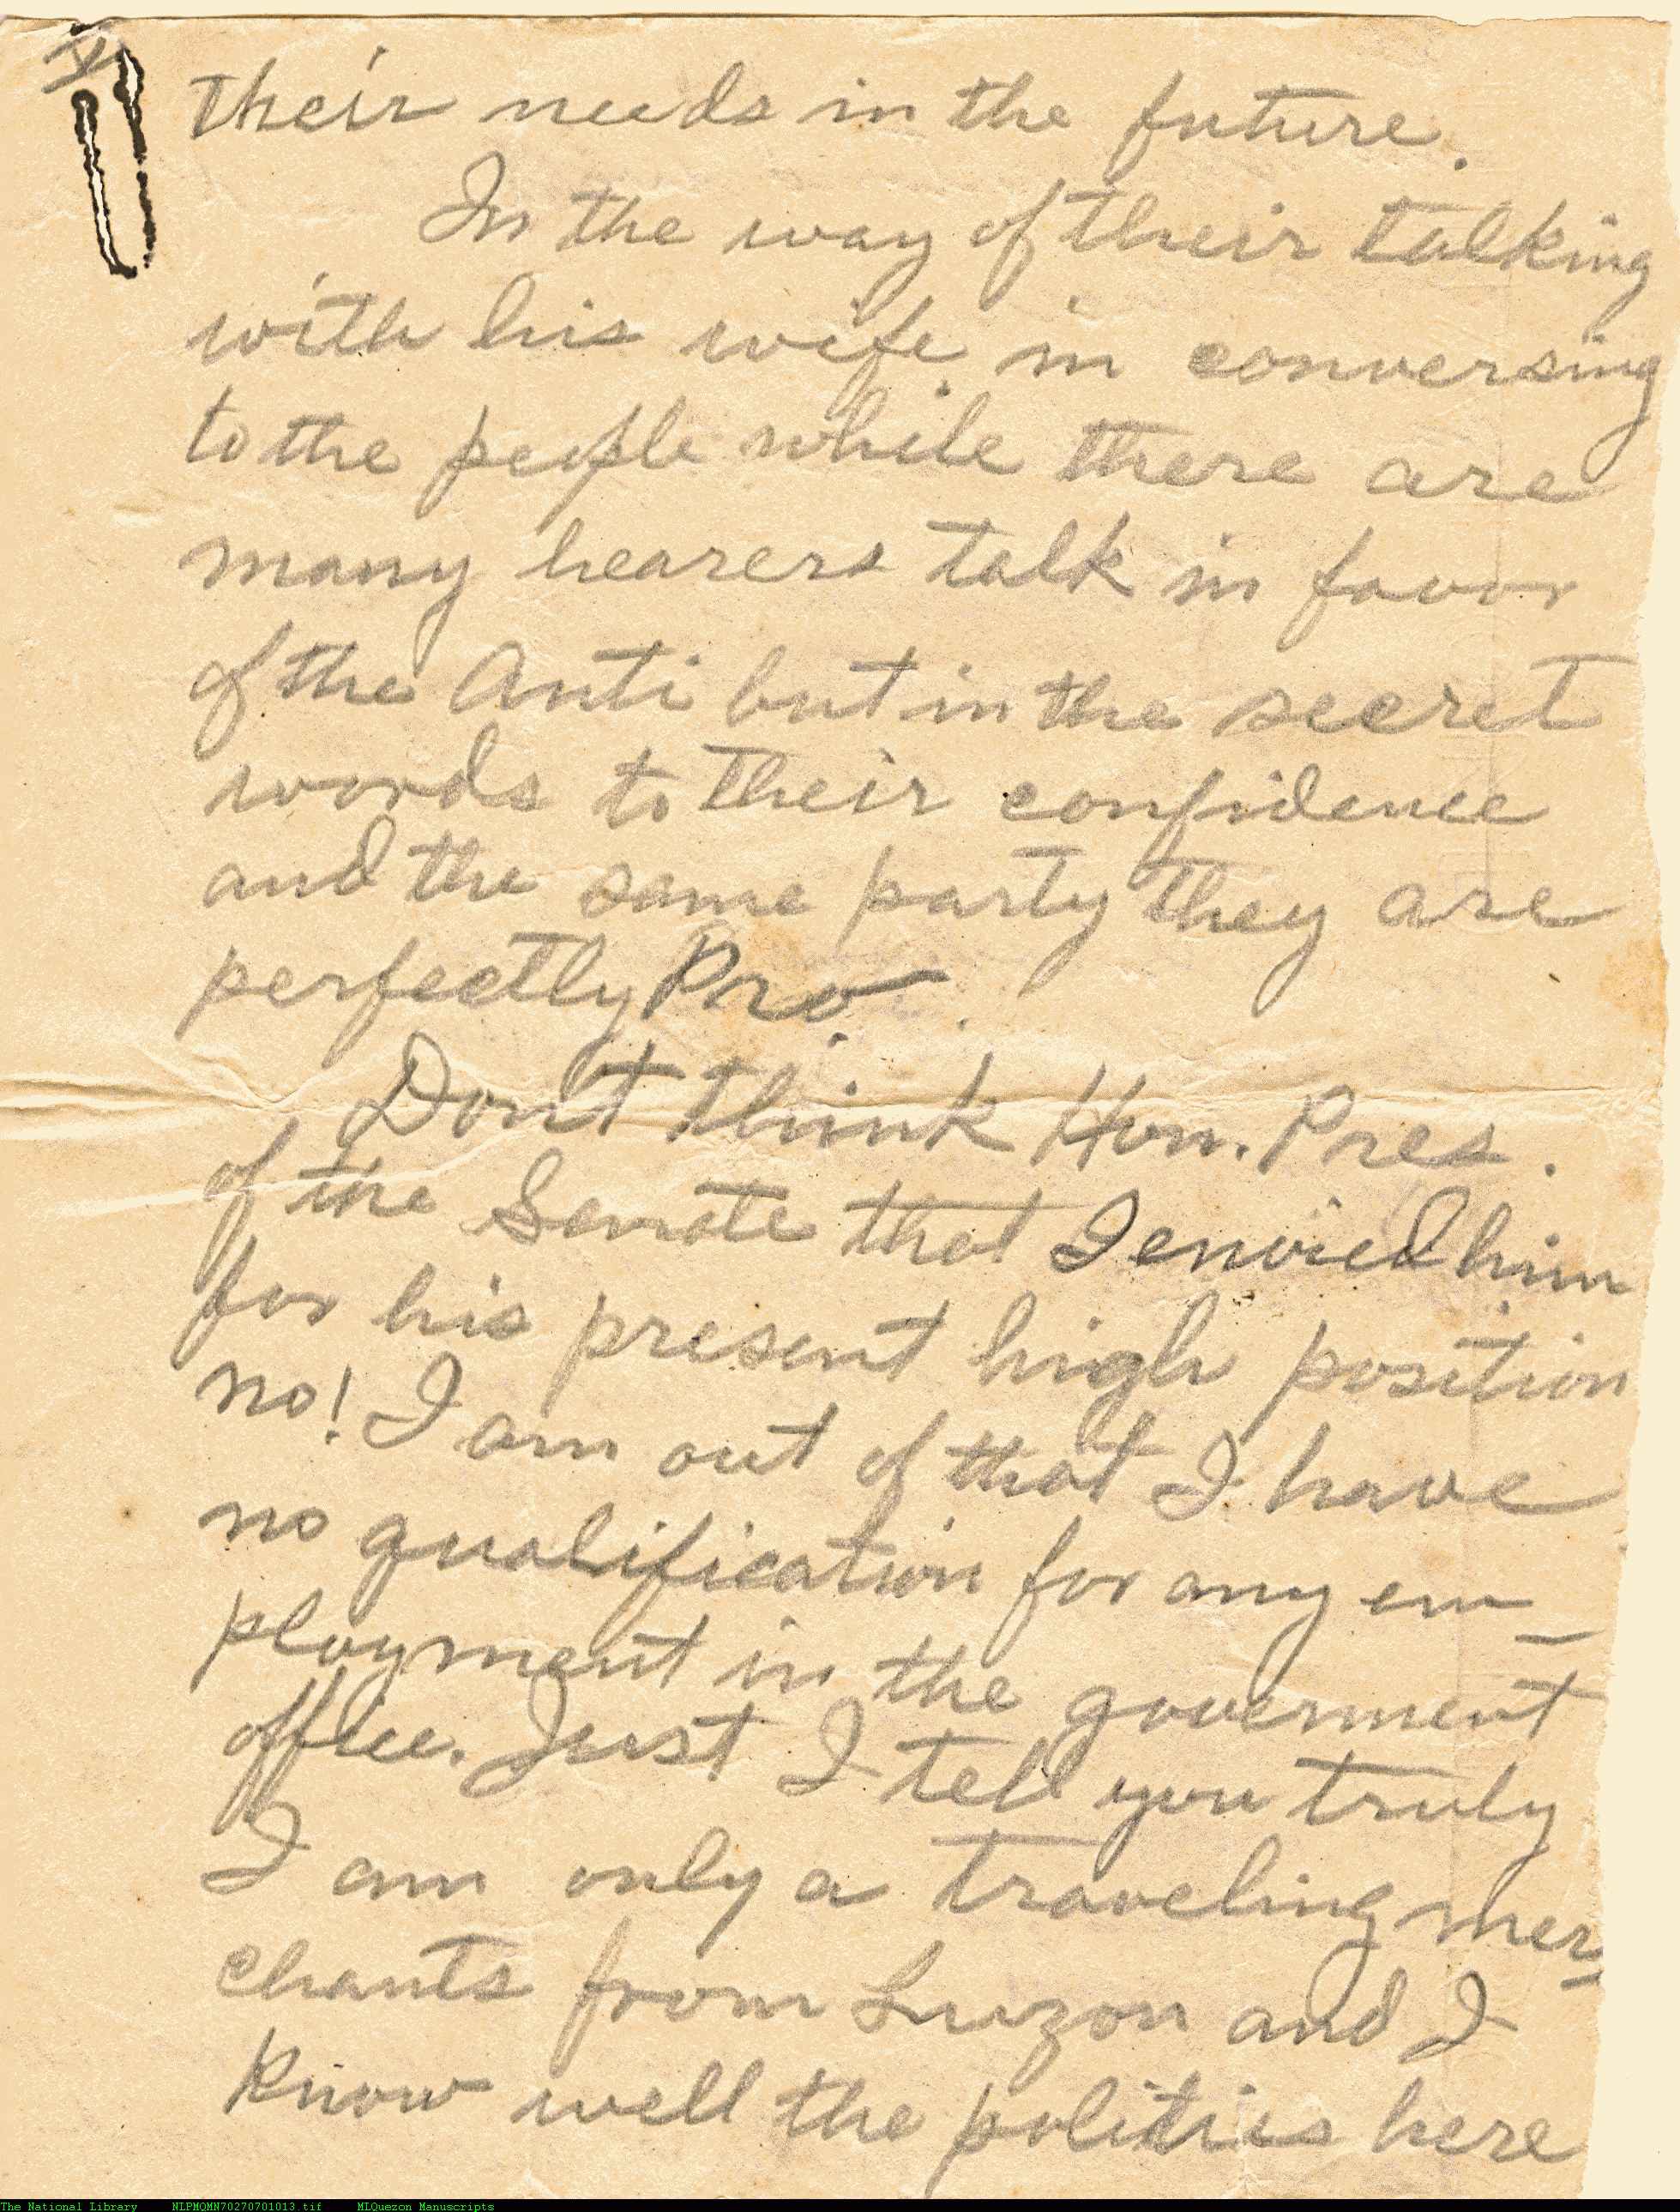 V
their needs in the future.
In the way of their talking
with his wife, in conversing
to the people while there are
many hearers talk in favor
of the Anti but in the secret
words to their confidence
and the same party they are
perfectly Pro.
Don't think Hon. Pres.
of the Senate that I envied him
for his present high position
no! I am out of that I have
no qualification for any em-
ployment in the goverment
office. Just I tell you truly
I am only a traveling mer-
chants from Luzon and I
know well the politics here
The National Library NLPMQMN70270701013.tif MLQuezon Manuscripts